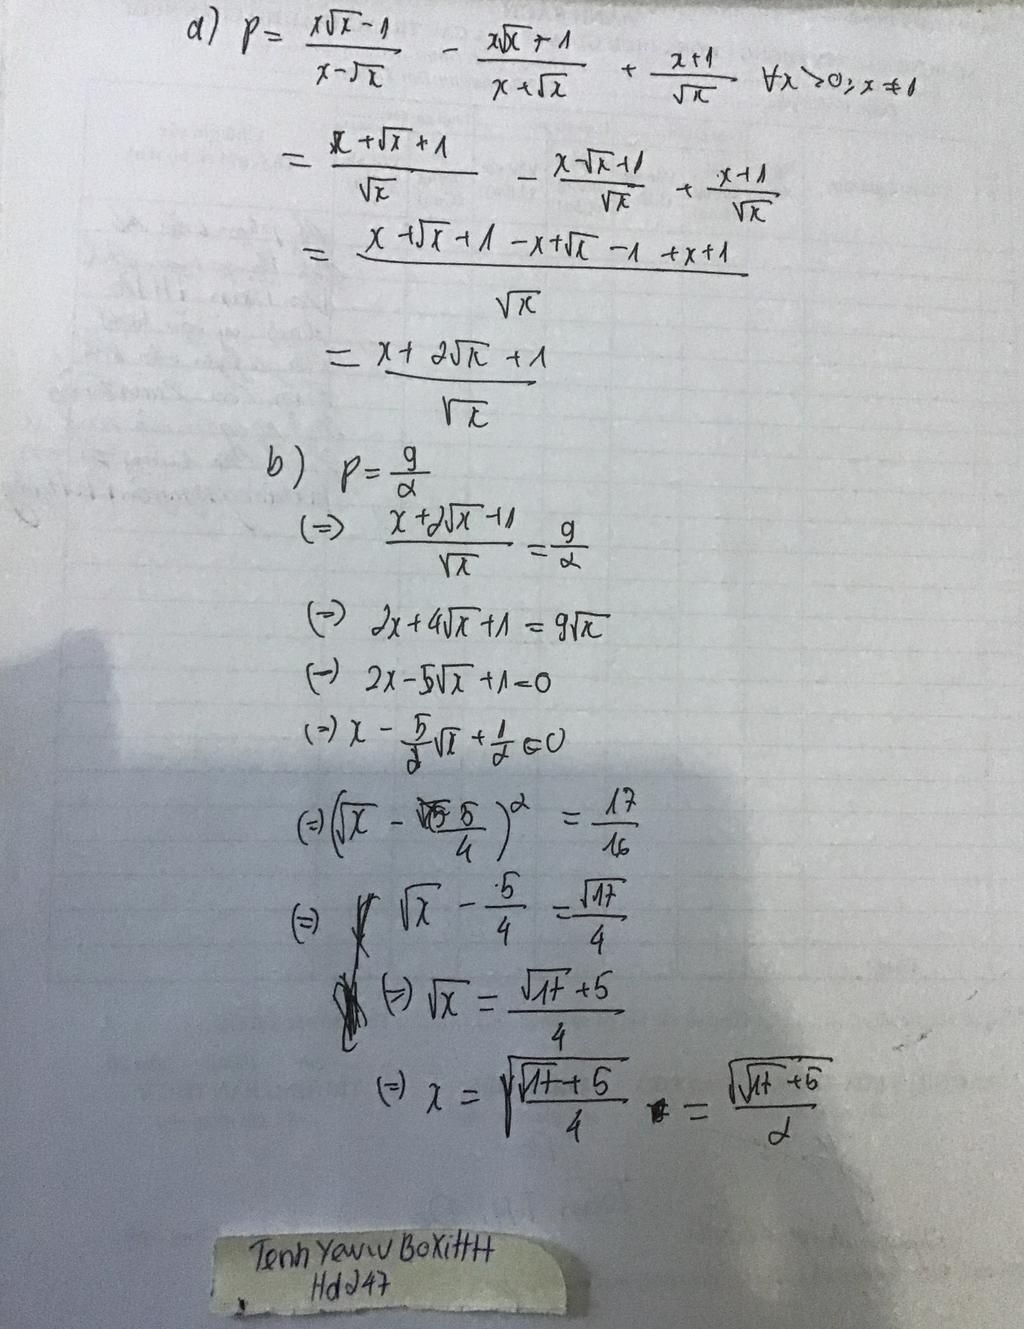 a) P = (x√x − 1)/(x − √x) − (x√x + 1)/(x + √x) + (x+1)/√x ∀x > 0; x ≠ 1
= (x + √x + 1)/√x − (x − √x + 1)/√x + (x+1)/√x
= (x + √x + 1 − x + √x − 1 + x + 1)/√x
= (x + 2√x + 1)/√x
b) P = 9/2
(=) (x + 2√x + 1)/√x = 9/2
(=) 2x + 4√x + 1 = 9√x
(=) 2x − 5√x + 1 = 0
(=) x − 5/2 √x + 1/2 = 0
(=) (√x − 5/4)² = 17/16
(=) √x − 5/4 = √17/4
(=) √x = (√17 + 5)/4
(=) x = √((√17 + 5)/4) = √(√17 + 5)/2
Hd247